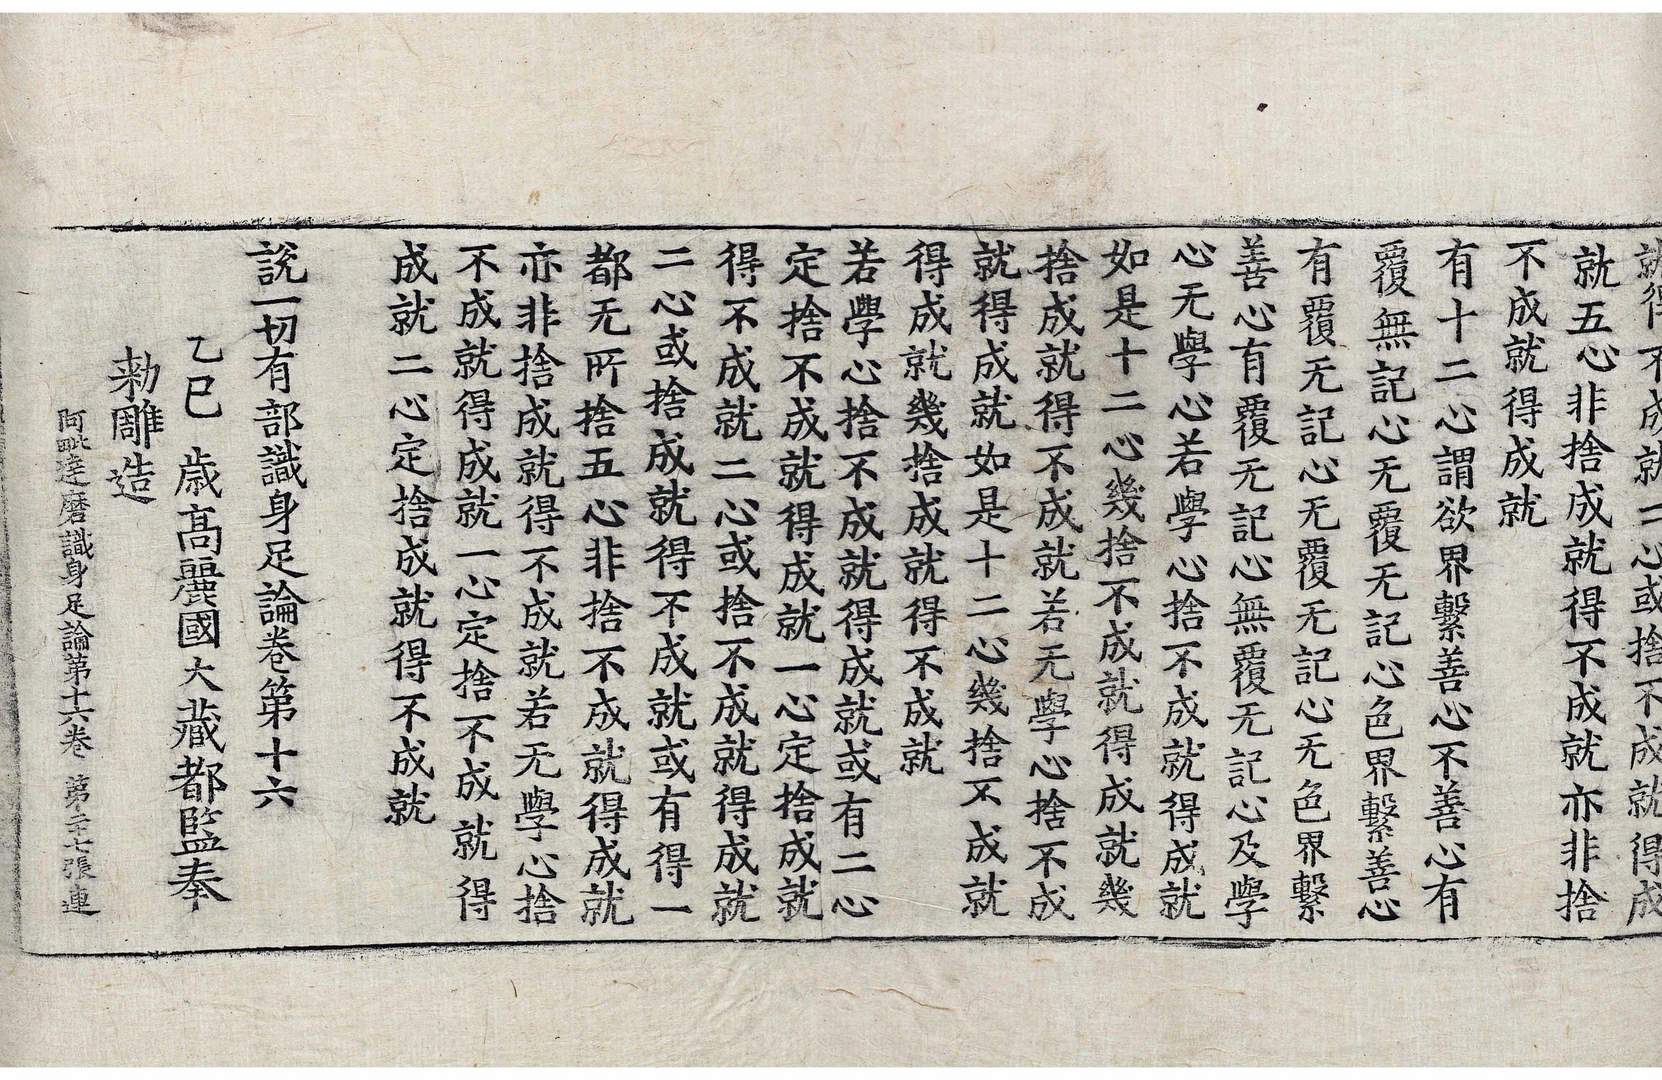 就得不成就二心或捨不成就得成
就五心非捨成就得不成就亦非捨
不成就得成就
有十二心謂欲界繫善心不善心有
覆無記心无覆无記心色界繫善心
有覆无記心无覆无記心无色界繫
善心有覆无記心無覆无記心及學
心无學心若學心捨不成就得成就
如是十二心幾捨不成就得成就幾
捨成就得不成就若无學心捨不成
就得成就如是十二心幾捨不成就
得成就幾捨成就得不成就
若學心捨不成就得成就或有二心
定捨不成就得成就一心定捨成就
得不成就二心或捨不成就得成就
二心或捨成就得不成就或有得一
都无所捨五心非捨不成就得成就
亦非捨成就得不成就若无學心捨
不成就得成就一心定捨不成就得
成就二心定捨成就得不成就
說一切有部識身足論卷第十六
乙巳歲高麗國大藏都監奉
勑雕造
阿毗達磨識身足論第十六卷 第二十七張 連